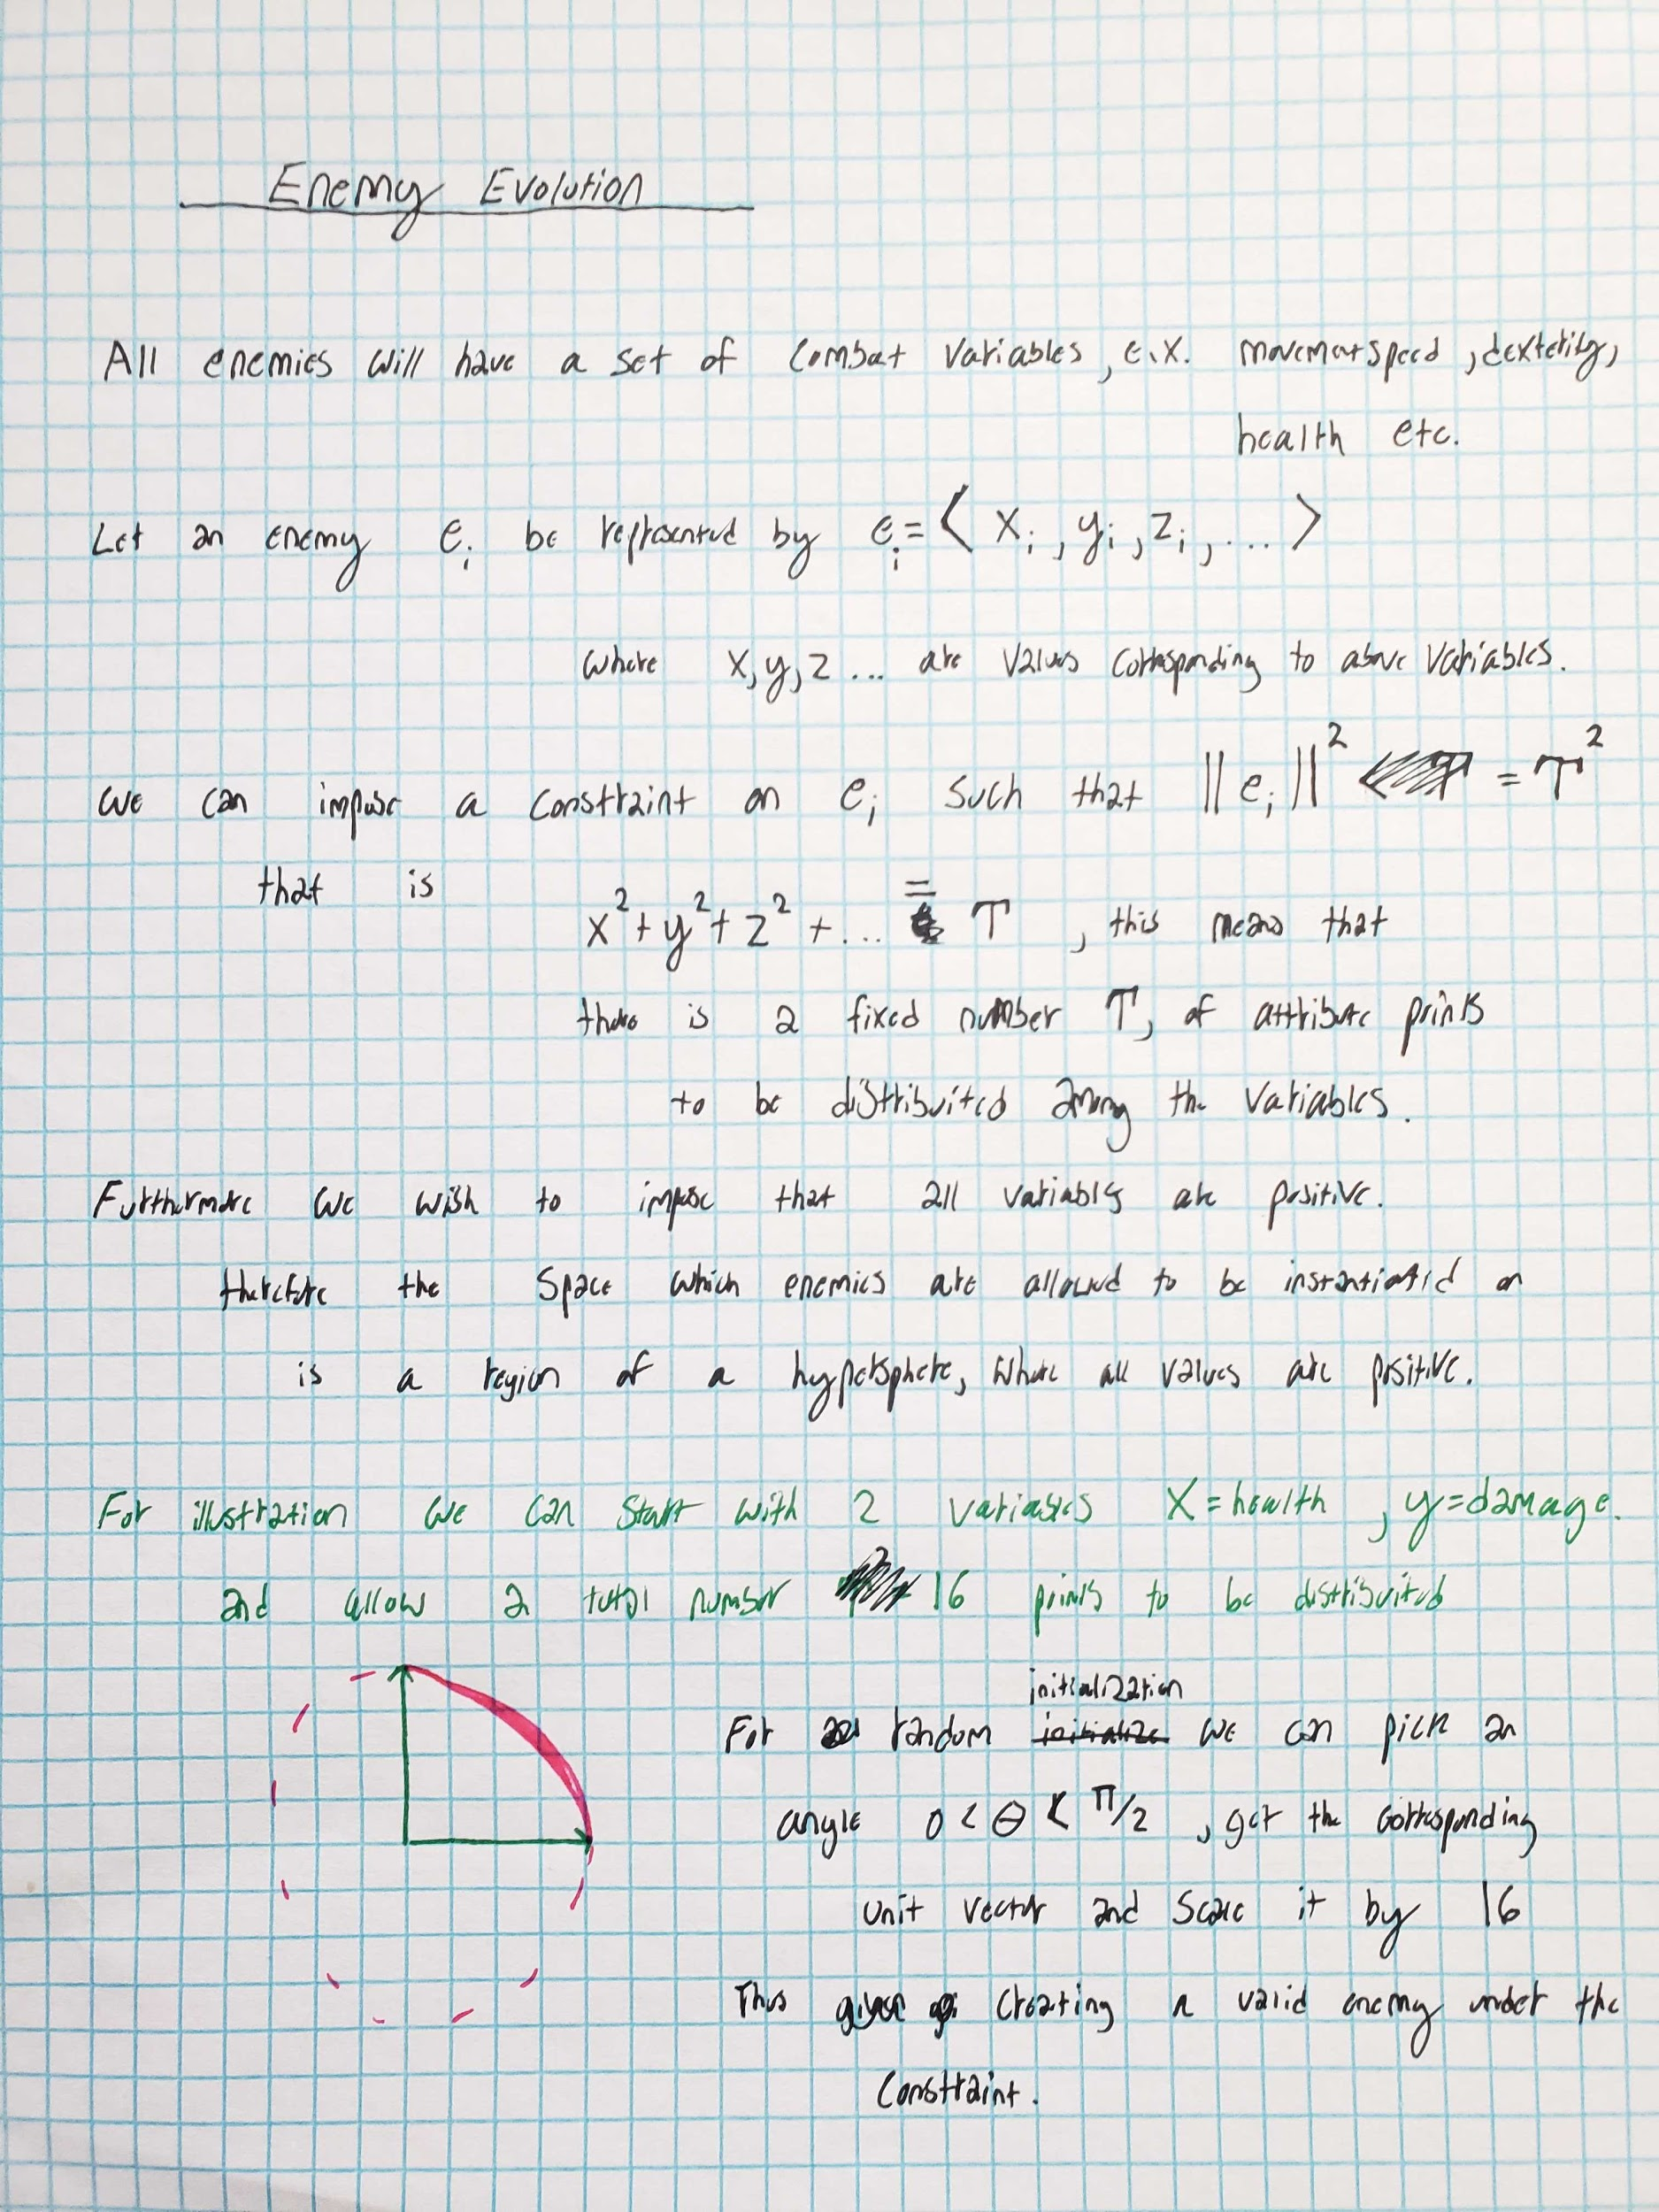 Enemy Evolution
All enemies will have a set of combat variables, e.x. movement speed, dexterity,
health etc.
Let an enemy eᵢ be represented by eᵢ = ⟨ xᵢ, yᵢ, zᵢ, ... ⟩
where x, y, z ... are values corresponding to above variables.
we can impose a constraint on eᵢ such that ||eᵢ||² = T²
that is
x² + y² + z² + ... = T , this means that
there is a fixed number T, of attribute points
to be distribuited among the variables.
Furthermore we wish to impose that all variables are positive.
therefore the space which enemies are allowed to be instantiated on
is a region of a hypersphere, where all values are positive.
For illustration we can start with 2 variables X = health , y = damage.
and allow a total number 16 points to be distribuited
initialization
For random initialize we can pick an
angle 0 < θ < π/2 , get the corresponding
unit vector and scale it by 16
Thus creating a valid enemy under the
constraint.